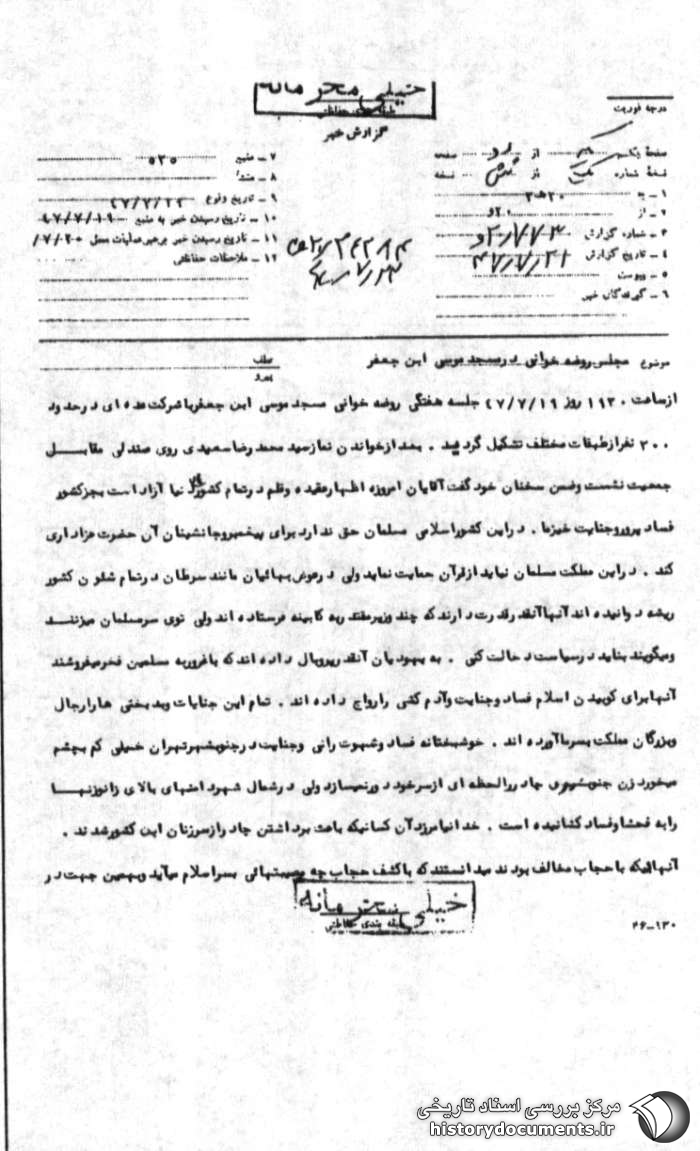 خیلی محرمانه
طبقه بندی حفاظتی
گزارش خبر
درجه فوریت
صفحه یکم از دو صفحه
نسخهٔ شماره یک از شش نسخه
۱ ـ به ۳۲۰
۲ ـ از ۲۰ و
۳ ـ شماره گزارش
۴ ـ تاریخ گزارش ۴۷٫۷٫۲۱
۵ ـ پیوست
۶ ـ گیرندگان خبر
۷ ـ منبع ۵۳۵
۸ ـ منشأ
۹ ـ تاریخ وقوع
۱۰ ـ تاریخ رسیدن خبر به منبع ۴۷/۷/۱۹
۱۱ ـ تاریخ رسیدن خبر برهبر عملیات محل ۷/۲۰/
۱۲ ـ ملاحظات حفاظتی
موضوع مجلس روضه خوانی در مسجد موسی ابن جعفر
عطف
پیرو
از ساعت ۱۹۳۰ روز ۴۷/۷/۱۹ جلسه هفتگی روضه خوانی مسجد موسی ابن جعفر با شرکت عده ای در حدود
۳۰۰ نفر از طبقات مختلف تشکیل گردید . بعد از خواندن نماز سید محمد رضا سعیدی روی صندلی مقابل
جمعیت نشست و ضمن سخنان خود گفت آقایان امروزه اظهار عقیده و ظلم در تمام کشور دنیا آزاد است بجز کشور
فساد پرور و جنایت خیز ما . در این کشور اسلامی مسلمان حق ندارد برای پیغمبر و جانشینان آن حضرت عزاداری
کند . در این مملکت مسلمان نباید از قرآن حمایت نماید ولی در عوض بهائیان مانند سرطان در تمام شئون کشور
ریشه دوانیده اند آنها آنقدر قدرت دارند که چند وزیر مقتدر به کابینه فرستاده اند ولی توی سر مسلمان میزنند
و میگویند نباید در سیاست دخالت کنی . به یهودیان آنقدر پروبال داده اند که با غرور به مسلمین فخر میفروشند
آنها برای کوبیدن اسلام فساد و جنایت و آدم کشی را رواج داده اند . تمام این جنایات و بدبختی ها را رجال
و بزرگان مملکت بسر ما آورده اند . خوشبختانه فساد و شهوت رانی و جنایت در جنوب شهر تهران خیلی کم بچشم
میخورد زن جنوب شهری چادر را لحظه ای از سر خود دور نمیسازد ولی در شمال شهر دامنهای بالای زانو زنها
را به فحشا و فساد کشانیده است . خدا نیامرزد آن کسانیکه باعث برداشتن چادر از سر زنان این کشور شدند .
آنهائیکه با حجاب مخالف بودند میدانستند که با کشف حجاب چه مصیبتهائی بسر اسلام میآید و بهمین جهت در
خیلی محرمانه
طبقه بندی حفاظتی
۲۶-۱۳۰
مرکز بررسی اسناد تاریخی
historydocuments.ir